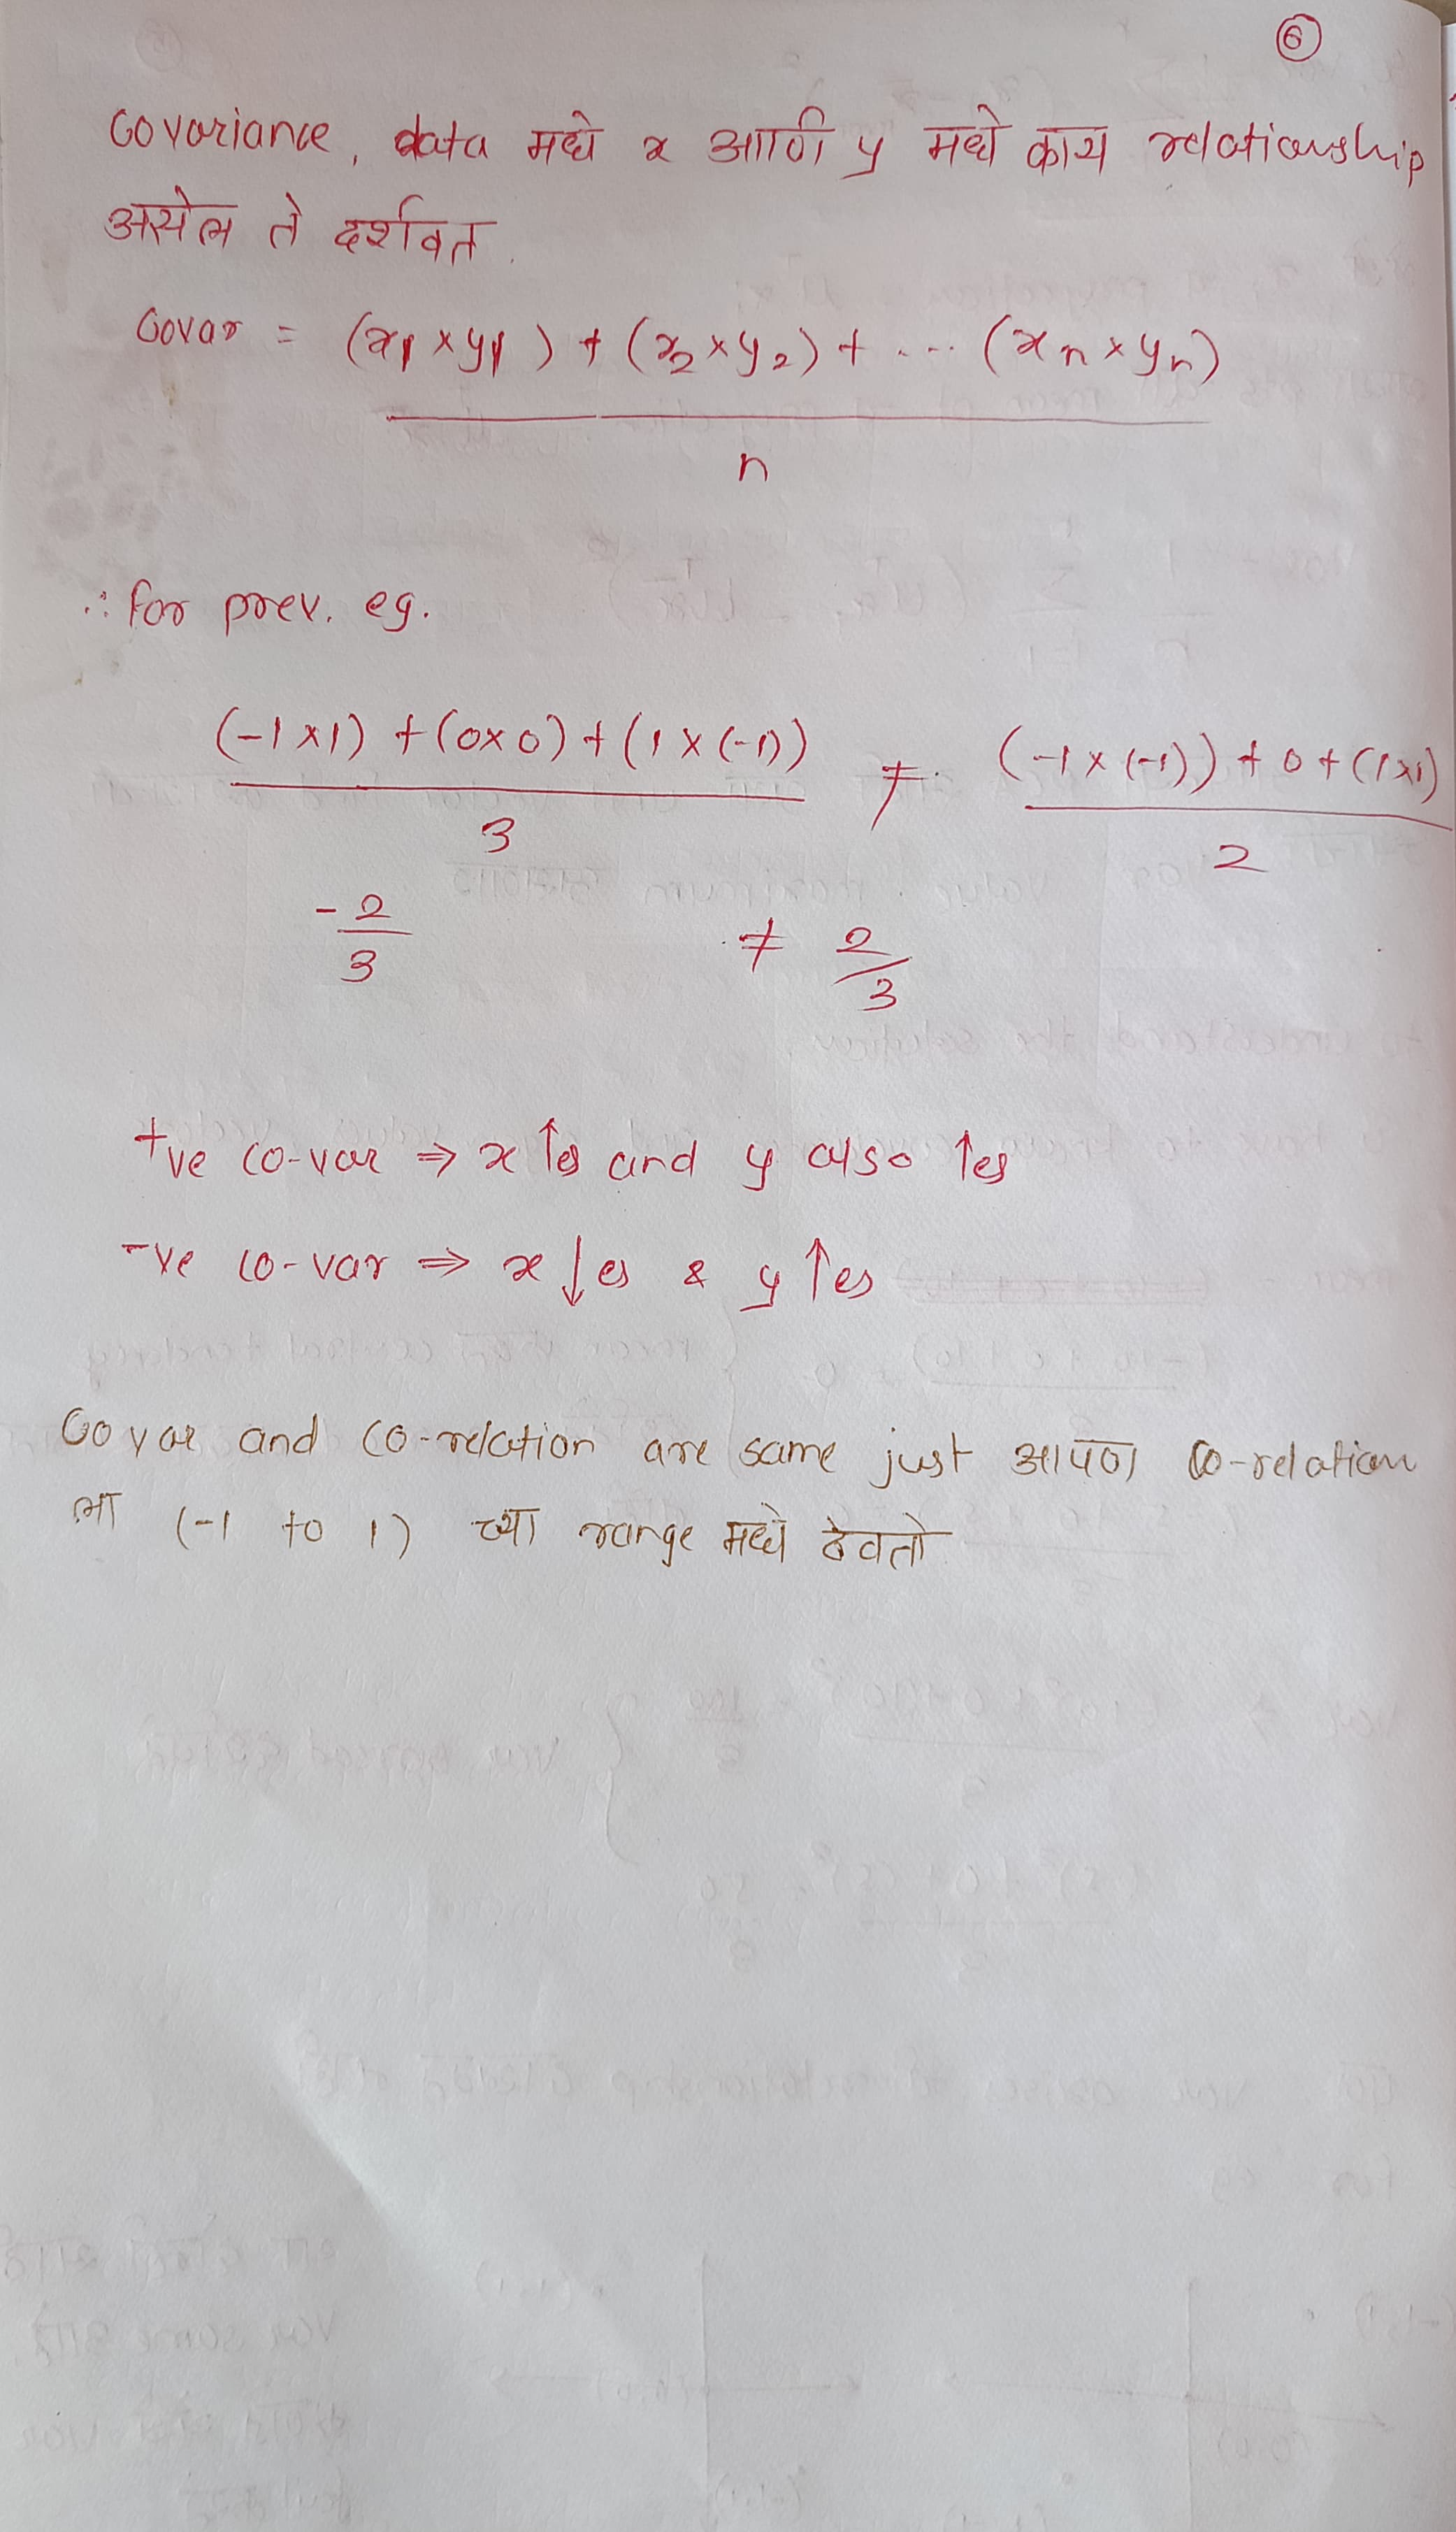 6
Covariance, data मध्ये x आणि y मध्ये काय relationship
असेल ते दर्शवत.
Covar = (x₁ × y₁) + (x₂ × y₂) + ... (xₙ × yₙ)
n
∴ for prev. eg.
(-1 × 1) + (0 × 0) + (1 × (-1)) ≠ (-1 × (-1)) + 0 + (1 × 1)
3 2
-2/3 ≠ 2/3
+ve co-var ⇒ x ↑es and y also ↑es
-ve co-var ⇒ x ↓es & y ↑es
Covar and co-relation are same just आपण co-relation
ला (-1 to 1) च्या range मध्ये ठेवतो